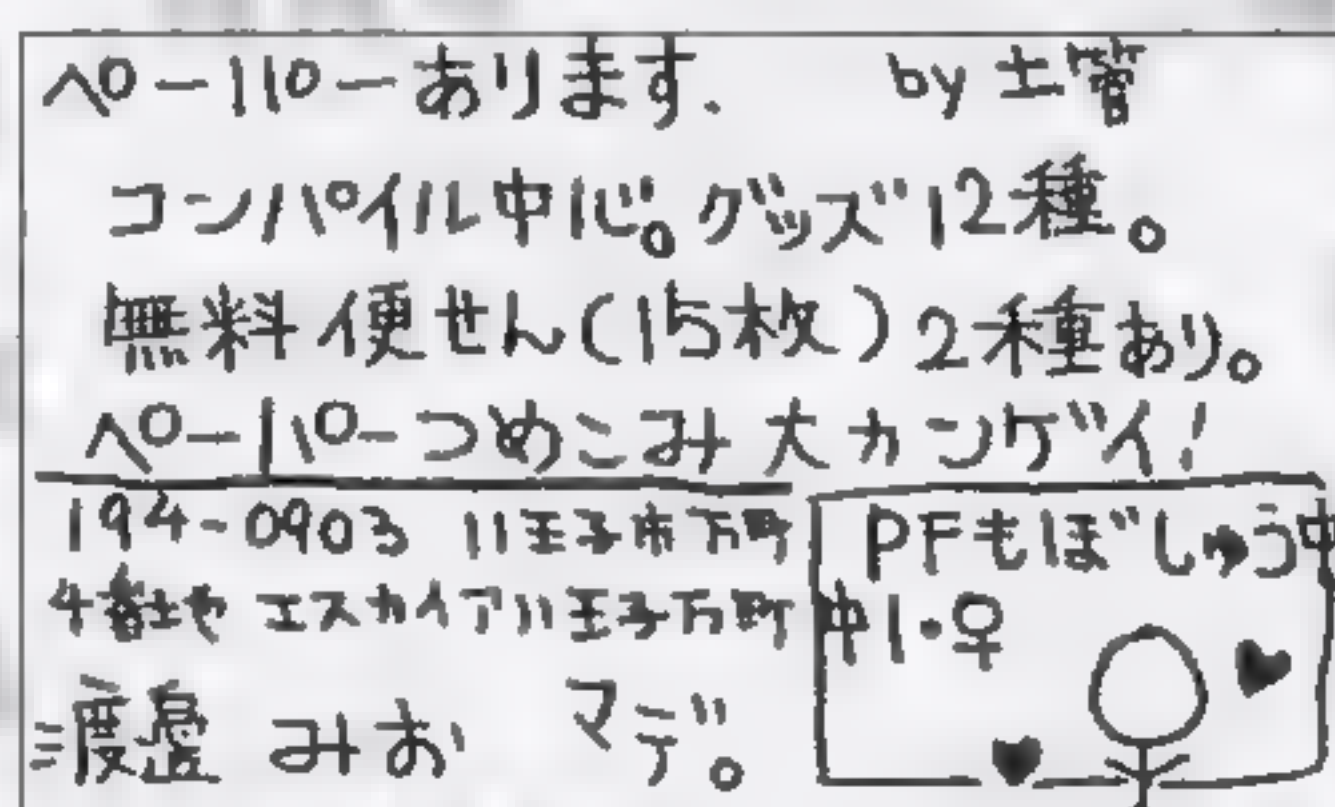 ペーパーあります. by 土管
コンパイル中心。グッズ12種。
無料便せん(15枚)2種あり。
ペーパーつめこみ大カンゲイ!
194-0903 八王子市万町
4番地や エスカイア八王子万町
渡邉 みお マデ。
PFもぼしゅう中
中1・♀